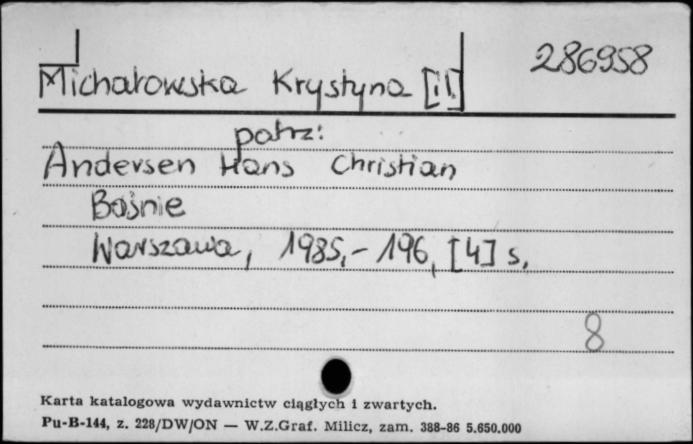 Michałowska Krystyna [il.] 286958
patrz:
Andersen Hans Christian
Baśnie
Warszawa, 1985.- 196, [4] s.
8
Karta katalogowa wydawnictw ciągłych i zwartych.
Pu-B-144, z. 228/DW/ON — W.Z.Graf. Milicz, zam. 388-86 5.650.000